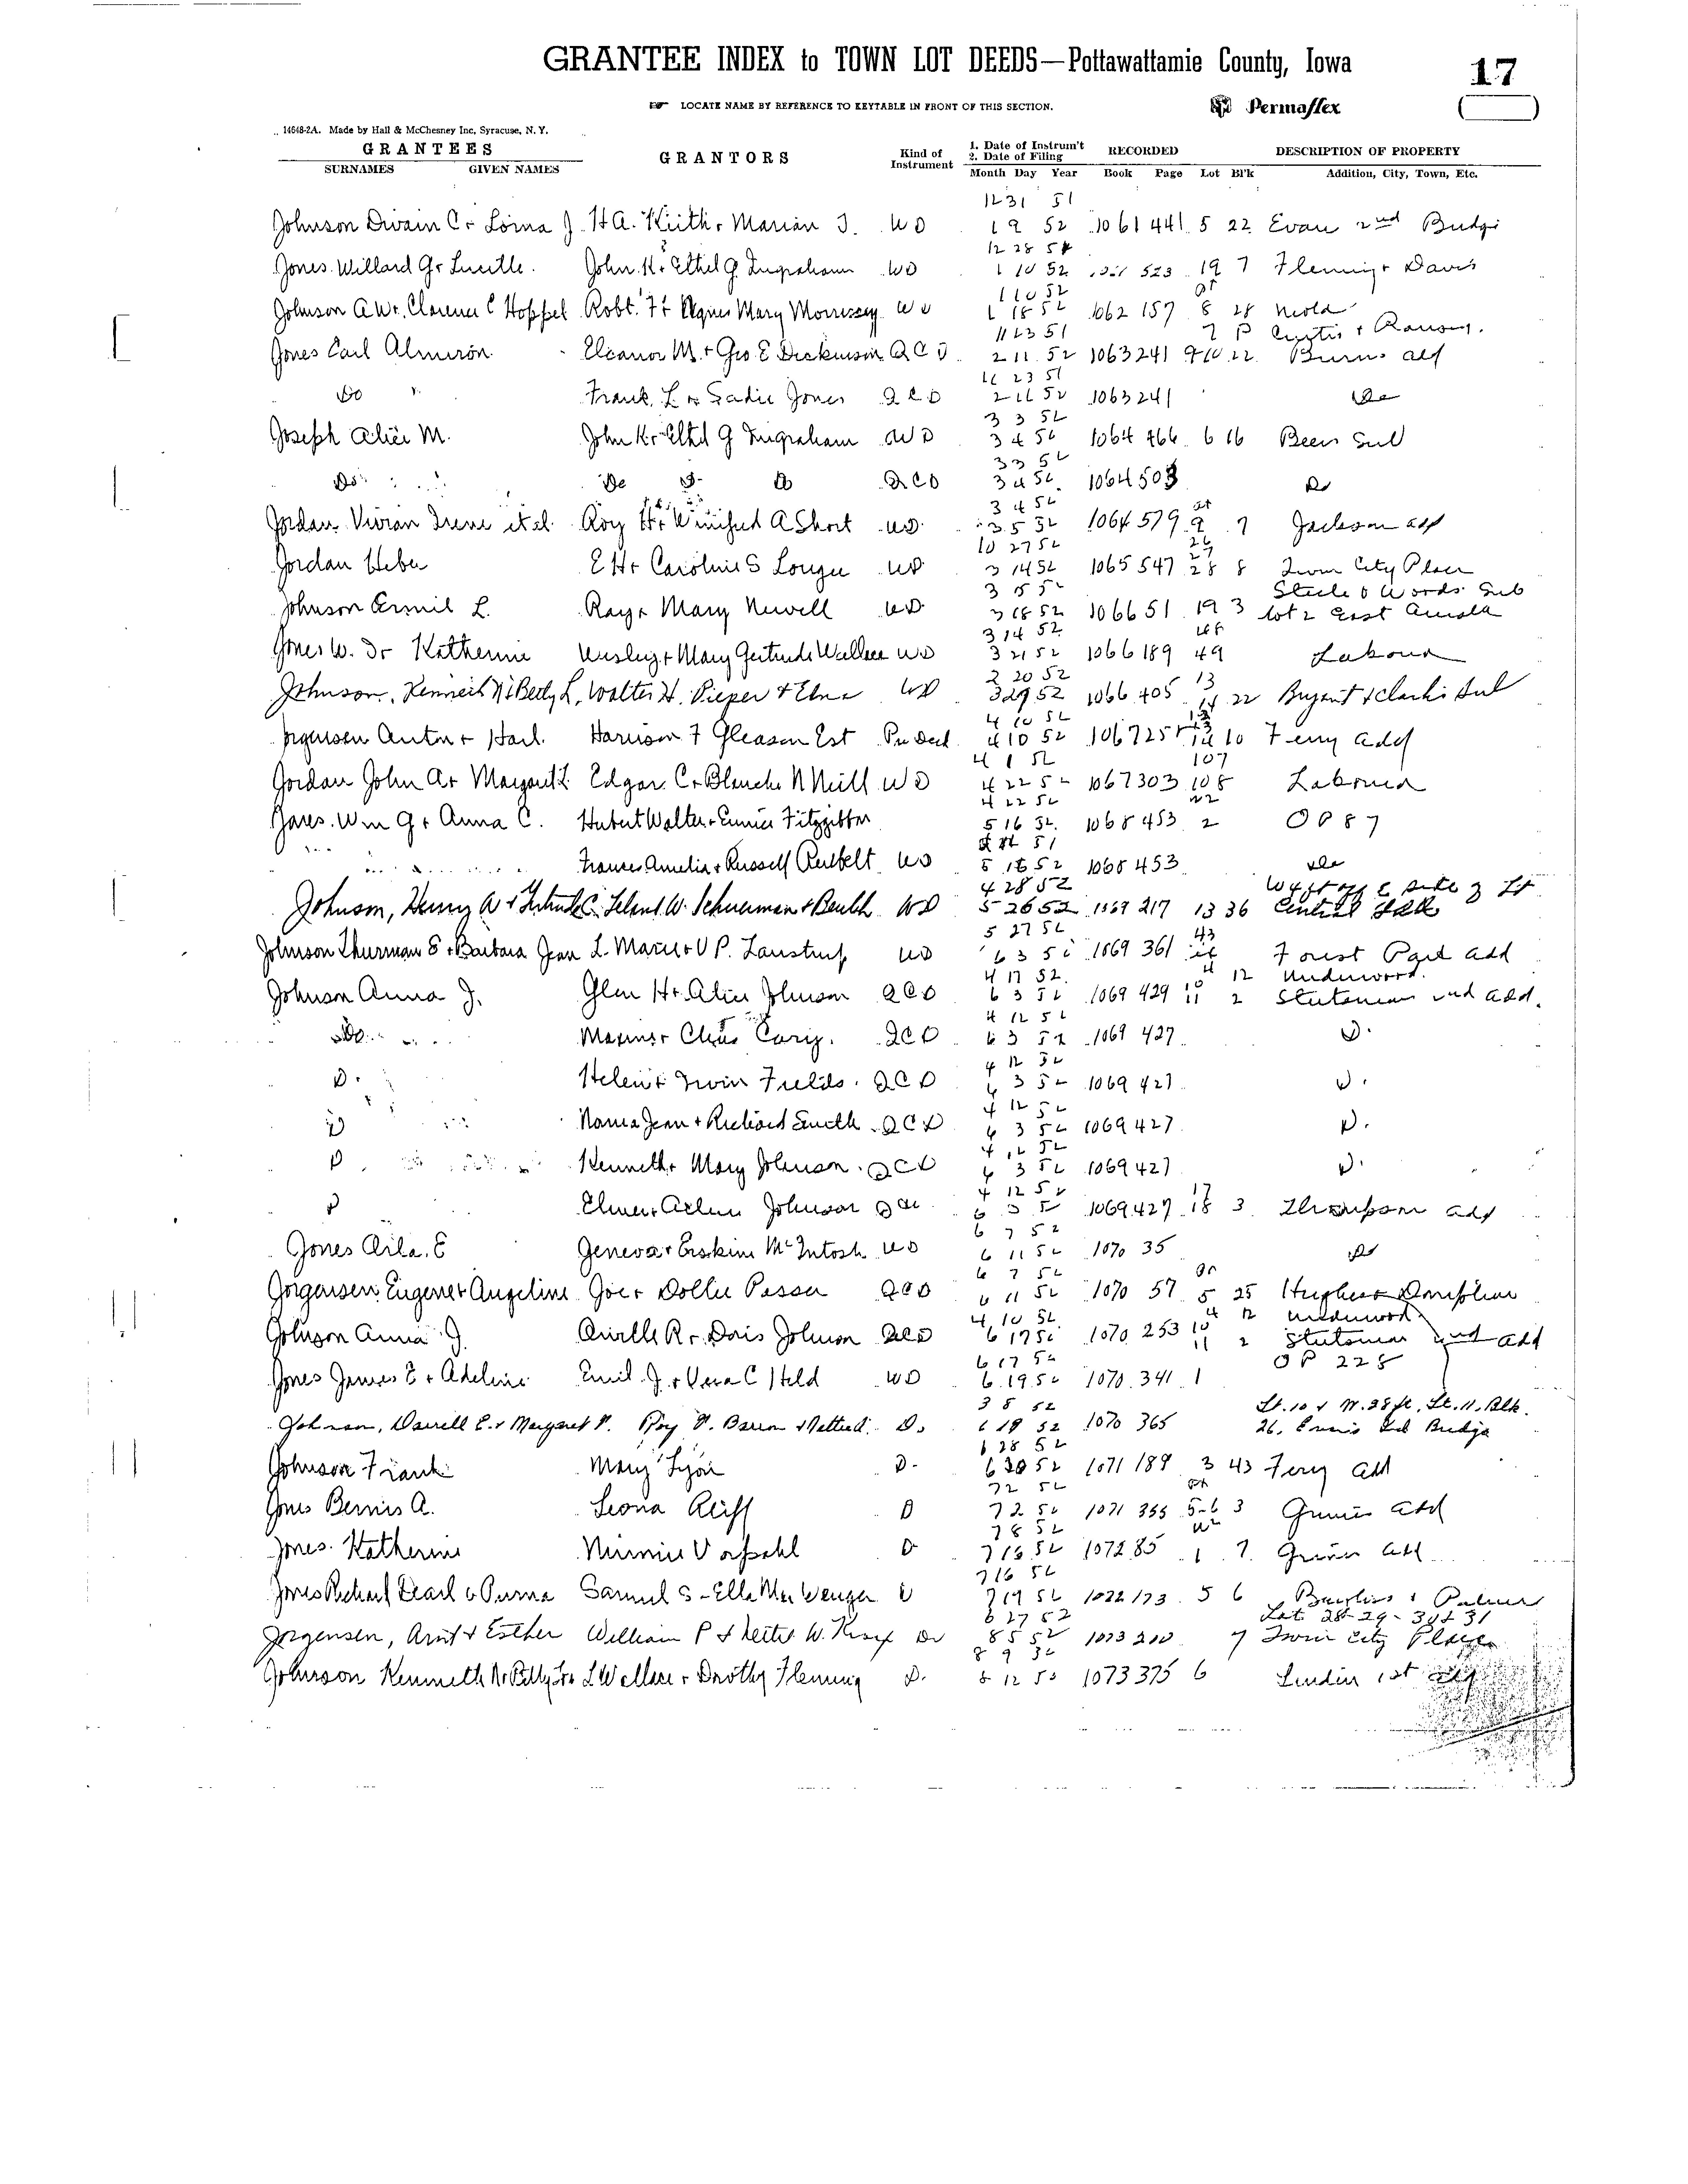 GRANTEE INDEX to TOWN LOT DEEDS—Pottawattamie County, Iowa
17
LOCATE NAME BY REFERENCE TO KEYTABLE IN FRONT OF THIS SECTION.
Permaflex
14648-2A. Made by Hall & McChesney Inc, Syracuse, N. Y.
GRANTEES GRANTORS Kind of Instrument 1. Date of Instrum't 2. Date of Filing RECORDED DESCRIPTION OF PROPERTY
SURNAMES GIVEN NAMES Month Day Year Book Page Lot Bl'k Addition, City, Town, Etc.
12 31 51
Johnson Dwain C + Lorna J. H A. Keith + Marian J. WD 1 9 52 1061 441 5 22 Evans 2nd Bridge
12 28 51
Jones Willard G + Lucille John K + Ethel G Ingraham WD 1 10 52 1061 523 19 7 Fleming + Davis
1 10 52
Johnson A W + Clarence C Hoppel Robt. F + Agnes Mary Morrissey WD 1 18 52 1062 157 8 28 Neola
11 23 51 7 P Curtis + Ramsey
Jones Earl Almiron Eleanor M. + Geo E Dickinson QCD 2 11 52 1063 241 9 10 22 Burns add
11 23 51
Do Frank L + Sadie Jones QCD 2 11 52 1063 241 Do
3 3 52
Joseph Alice M. John K + Ethel G Ingraham WD 3 4 52 1064 466 6 16 Beers Sub
3 3 52
Do Do QCD 3 4 52 1064 503 Do
3 4 52 pt
Jordan Vivian Irene et al Roy H + Winifred A Short WD 3 5 52 1064 579 9 7 Jackson add
10 27 52 26 27
Jordan Heber E H + Caroline S Lougee WD 3 14 52 1065 547 28 8 Twin City Place
3 15 52 Steele & Woods Sub
Johnson Ermil L. Ray + Mary Newell WD 3 18 52 1066 51 19 3 lot 2 East Amelia
3 14 52 48
Jones W. D + Katherine Wesley + Mary Gertrude Wallace WD 3 21 52 1066 189 49
2 20 52 13
Johnson, Kenneth N + Betty L. Walter H. Pieper + Edna WD 3 29 52 1066 405 14 22 Bryant + Clark's Sub
4 10 52
Jorgensen Anton + Harl. Harrison F Gleason Est 4 10 52 1067 14 10 Ferry add
4 1 52 107
Jordan John A + Margaret L Edgar C + Blanche N Neill WD 4 22 52 1067 303 108
4 22 52
Jares Wm G + Anna C. Hubert Walter + Eunice Fitzgibbon 5 16 52 1068 453 2 OP 87
Frances Amelia + Russell WD 5 16 52 1068 453 Do
4 28 52 W 4 ft off E side of Lt
Johnson, Henry A + Gertrude C. Leland W. Schuerman + Beulah WD 5 26 52 1069 217 13 36 Central Sub
5 27 52 43
Johnson Thurman E + Barbara Jean L. Marie + V P. Laustrup WD 6 3 52 1069 361 44 Forest Park add
4 17 52 4 12 Underwood
Johnson Anna J. Glen H + Alice Johnson QCD 6 3 52 1069 429 10 11 2 Stutsman 2nd add.
4 12 52
Do Maxine + Chas Cary QCD 6 3 52 1069 427 D.
4 12 52
D. Helen + Irwin Fields QCD 6 3 52 1069 427 D.
4 12 52
D Norma Jean + Richard Smith QCD 6 3 52 1069 427 D.
4 12 52
D Kenneth + Mary Johnson QCD 6 3 52 1069 427 D.
4 12 52 17
D Elmer + Arlene Johnson QCD 6 3 52 1069 427 18 3 Thompson add
6 7 52
Jones Arla. E Geneva + Erskine McIntosh WD 6 11 52 1070 35 Do
6 7 52
Jorgensen Eugene + Angeline Joe + Dollie Passer QCD 6 11 52 1070 57 5 25 Hughes + Doniphan
4 10 52 4 12 Underwood
Johnson Anna J. Orville R + Doris Johnson QCD 6 17 52 1070 253 10 11 2 Stutsman 2nd add
6 17 52 OP 228
Jones James E + Adeline Emil J. + Vera C Held WD 6 19 52 1070 341 1
3 8 52 Lt. 10 & W. 28 ft. Lt. 11, Blk.
Johnson, Darrell E. + Margaret P. Roy V. + Nettie D. 6 19 52 1070 365 26, Evans 2nd Bridge
6 28 52
Johnson Frank Mary Lyon D. 6 30 52 1071 189 3 43 Ferry add
7 2 52 pt
Jones Bernis A. Leona Aliff D 7 2 52 1071 355 5-6 3 Grimes add
7 8 52 W 2
Jones Katherine Minnie Vorpahl D 7 16 52 1072 85 1 7 add
7 16 52
Jones Richard Dearl + Samuel S - Ella Mae Wenger D 7 19 52 1072 173 5 6 Bayliss + Palmer
6 27 52 Lot 28-29-30+31
Jorgensen, Arnt + Esther William P + Lester W. D 8 5 52 1073 210 7 Twin City Place
8 9 52
Johnson Kenneth N + Betty Lou L Wallace + Dorothy Fleming D. 8 12 52 1073 375 6 Linden 1st add